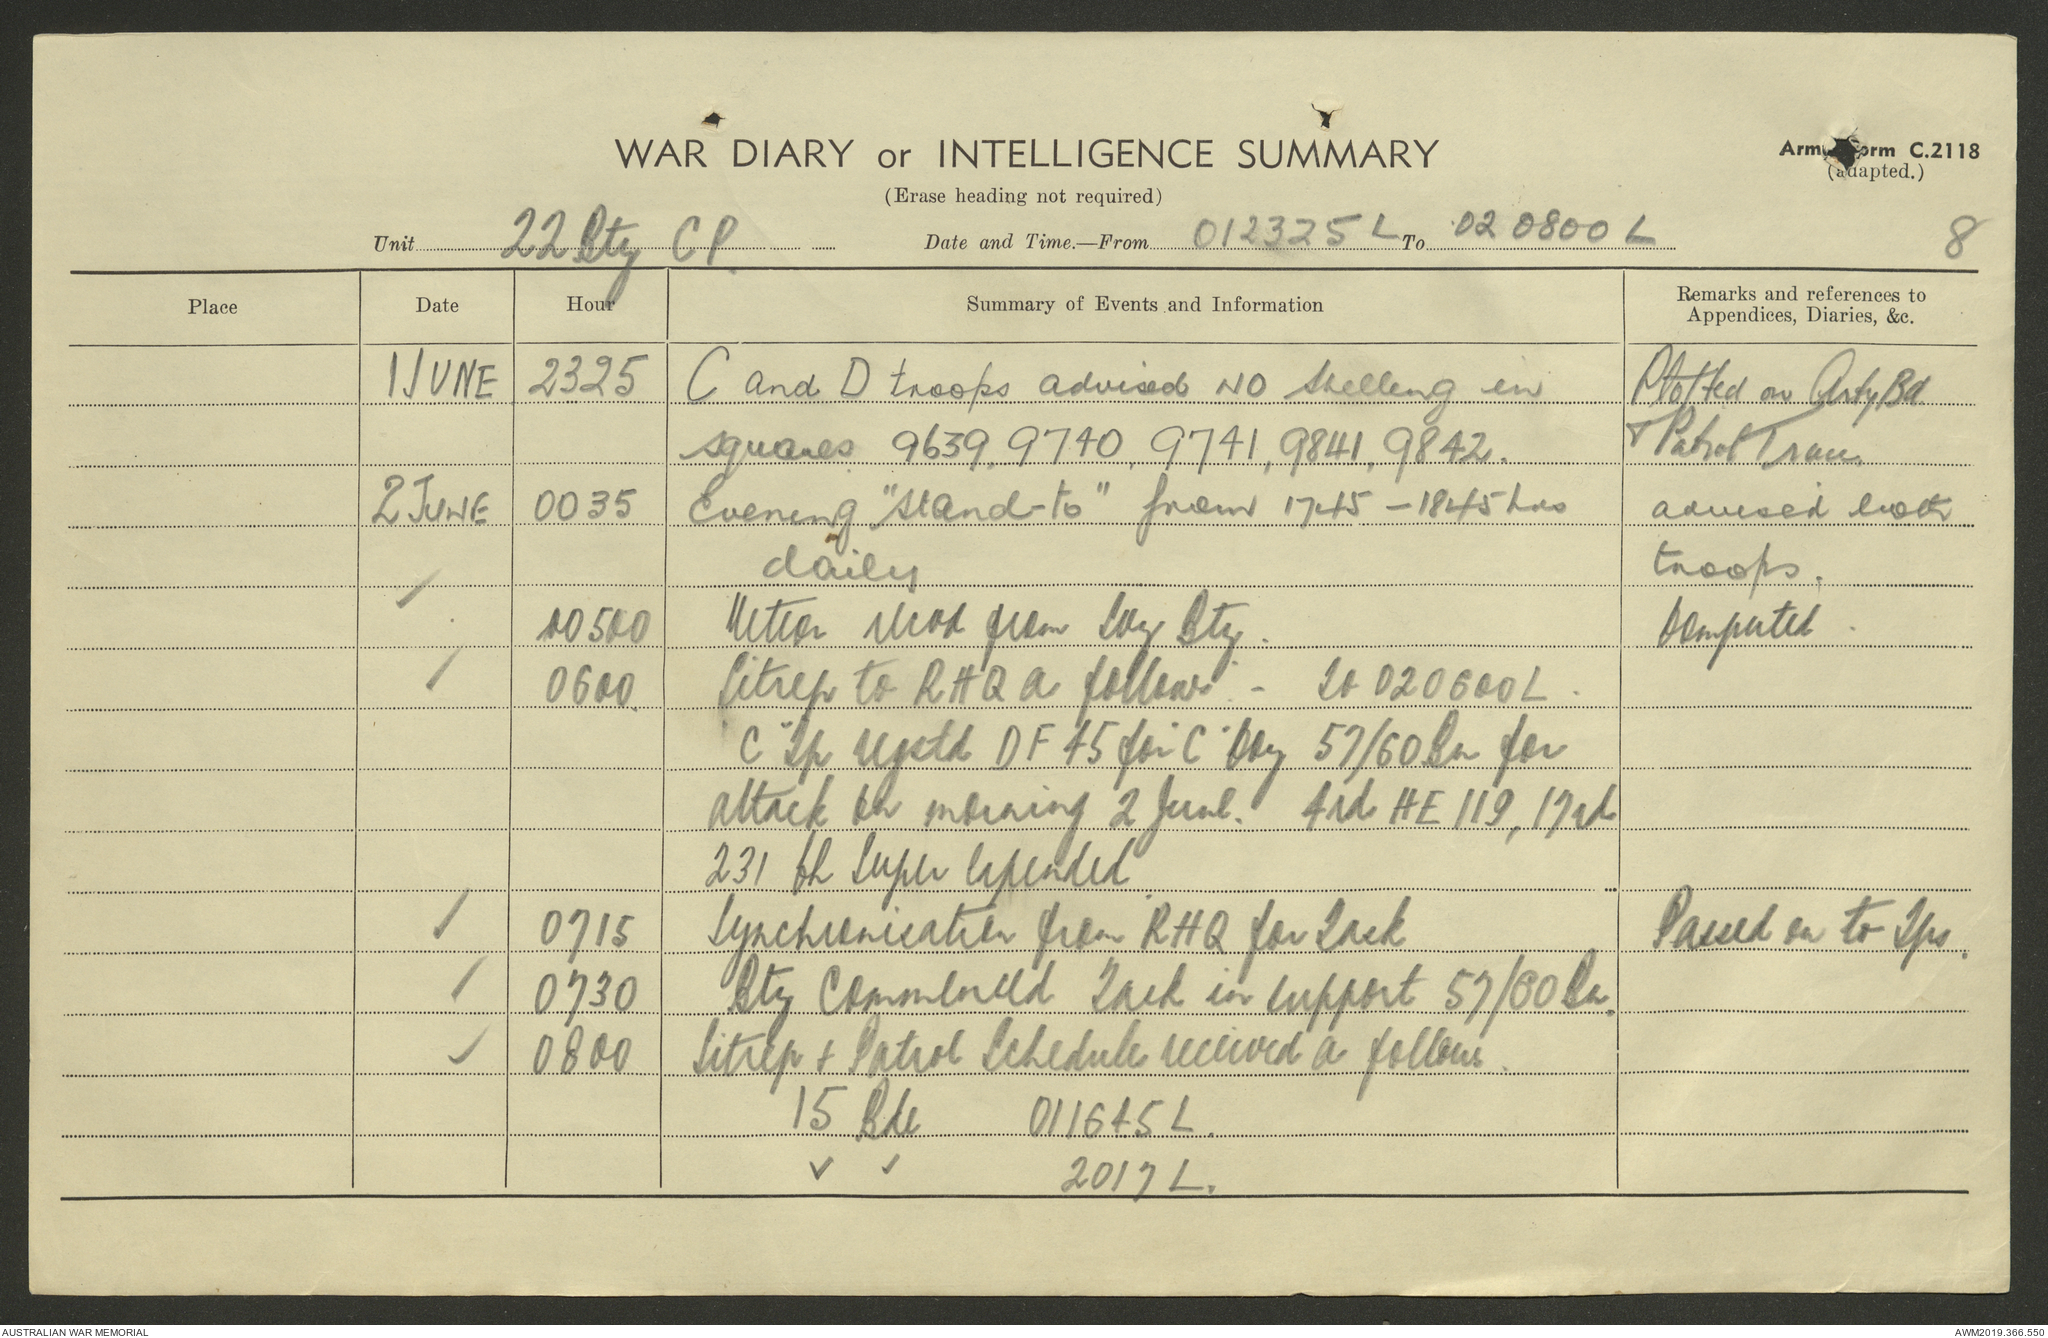 WAR DIARY or INTELLIGENCE SUMMARY
(Erase heading not required)
Army Form C.2118
(adapted.)
Unit 22 Bty CP. Date and Time.—From 012325 L To 020800 L
8
Place Date Hour Summary of Events and Information Remarks and references to
Appendices, Diaries, &c.
1 JUNE 2325 C and D troops advised NO shelling in Plotted on Arty Bd
squares 9639, 9740, 9741, 9841, 9842. & Patrol Trace
2 JUNE 0035 Evening "stand-to" from 1745 - 1845 hrs advised both
daily troops.
0500 Meteor recd from Svy Bty. Computed.
0600 Sitrep to RHQ a follows - To 020600L.
"C" Tp regstd DF 45 for "C" Coy 57/60 Bn for
attack on morning 2 June. 4rd HE 119, 17rd
231 Ch Super expended.
0715 Synchronisation from RHQ for Task Passed on to Tps.
0730 Bty Commenced Task in support 57/60 Bn.
0800 Sitrep + Patrol Schedule received a follows.
15 Bde 011645 L.
✓ ✓ 2017 L.
AUSTRALIAN WAR MEMORIAL
AWM2019.366.550